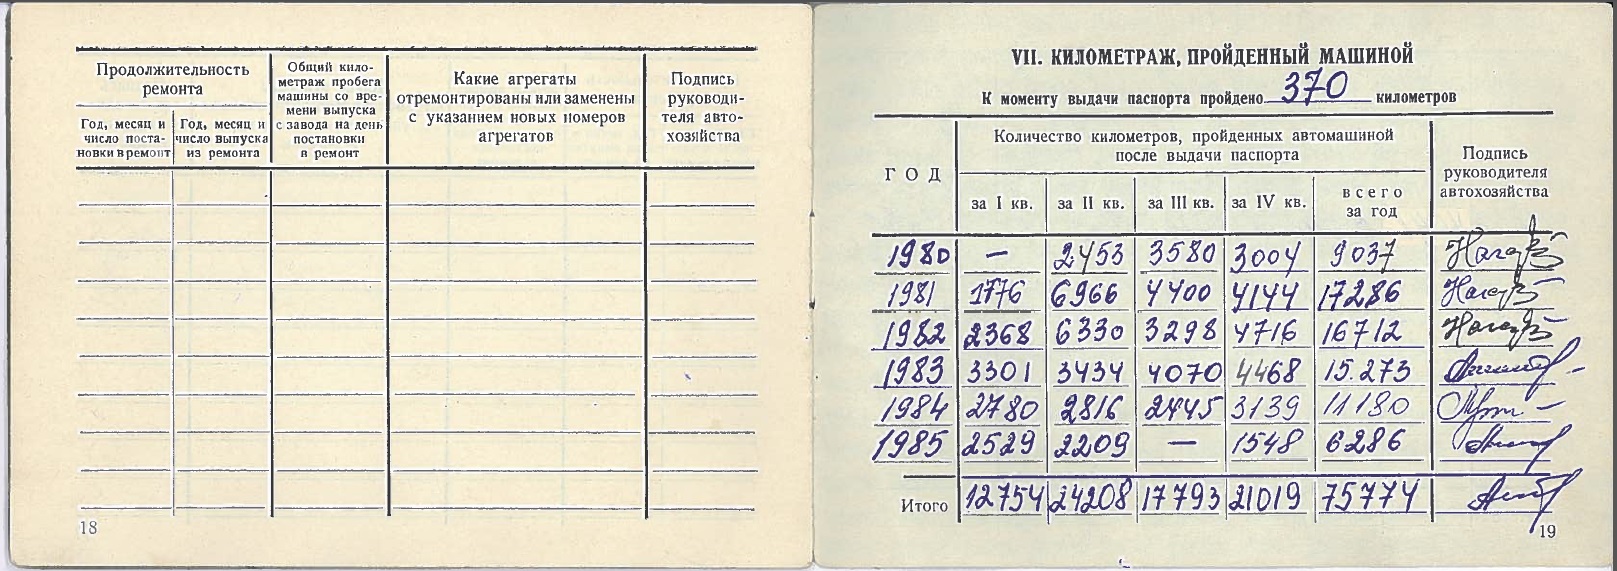 Продолжительность
ремонта
Год, месяц и
число поста-
новки в ремонт
Год, месяц и
число выпуска
из ремонта
Общий кило-
метраж пробега
машины со вре-
мени выпуска
с завода на день
постановки
в ремонт
Какие агрегаты
отремонтированы или заменены
с указанием новых номеров
агрегатов
Подпись
руководи-
теля авто-
хозяйства
18
VII. КИЛОМЕТРАЖ, ПРОЙДЕННЫЙ МАШИНОЙ
К моменту выдачи паспорта пройдено 370 километров
ГОД
Количество километров, пройденных автомашиной
после выдачи паспорта
за I кв.
за II кв.
за III кв.
за IV кв.
всего
за год
Подпись
руководителя
автохозяйства
1980 — 2453 3580 3004 9037
1981 1776 6966 4400 4144 17286
1982 2368 6330 3298 4716 16712
1983 3301 3434 4070 4468 15.273
1984 2780 2816 2445 3139 11180
1985 2529 2209 — 1548 6286
Итого 12754 24208 17793 21019 75774
19